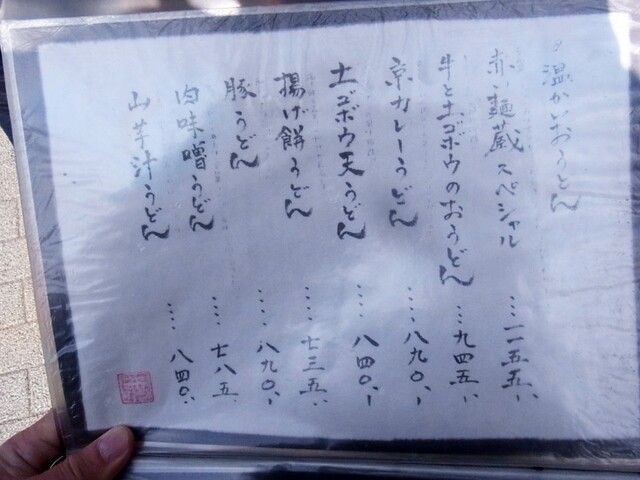 温かいおうどん
赤い麺蔵スペシャル ‥‥一一五五
牛と土ゴボウのおうどん ‥‥九四五
京カレーうどん ‥‥八九〇
土ゴボウ天うどん ‥‥八四〇
揚げ餅うどん ‥‥七三五
豚うどん ‥‥八九〇
肉味噌うどん ‥‥七八五
山芋汁うどん ‥‥八四〇